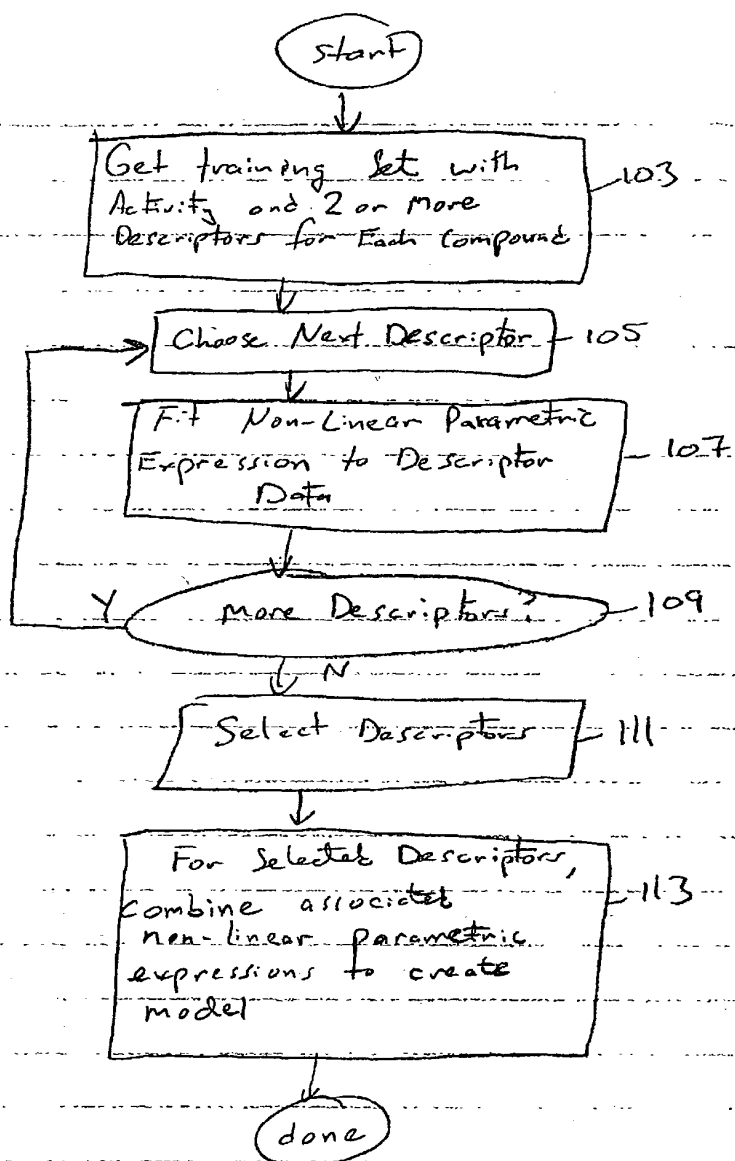 start
Get training Set with
Activity and 2 or More
Descriptors for Each Compound
103
Choose Next Descriptor
105
Fit Non-Linear Parametric
Expression to Descriptor
Data
107
More Descriptors?
109
Y
N
Select Descriptors
111
For Selected Descriptors,
combine associated
non-linear parametric
expressions to create
model
113
done